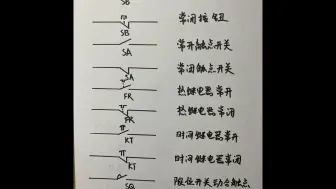 SB
SB 常闭按钮
SA 常开触点开关
SA 常闭触点开关
FR 热继电器常开
FR 热继电器常闭
KT 时间继电器常开
KT 时间继电器常闭
SQ 限位开关动合触点